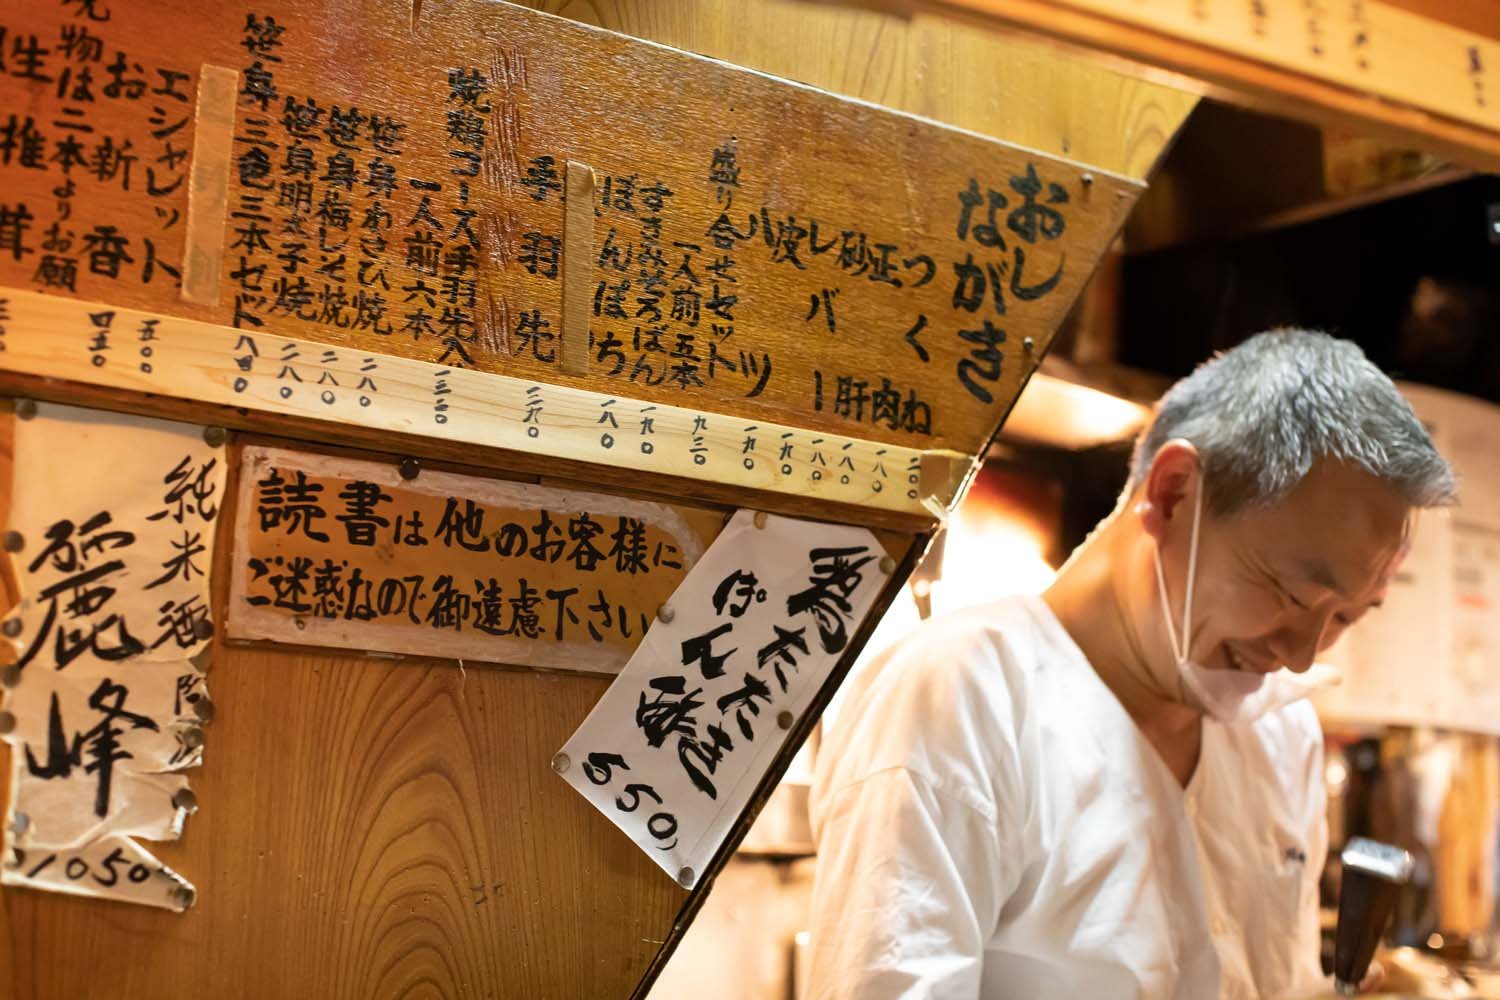 おしながき
ねぎ肉
つくね
正肉
砂肝
レバー
皮
ハツ
盛り合せセット
一人前五本
すきみそろばん
ぼんぼち
手羽先
焼鶏コース手羽先入
一人前六本
笹身わさび焼
笹身梅しそ焼
笹身明太子焼
笹身三色三本セット
エシャレット
お新香
物は二本よりお願
生椎茸
二〇〇
一八〇
一八〇
一八〇
一九〇
一九〇
九三〇
一九〇
一八〇
二八〇
二八〇
二八〇
八四〇
五〇〇
四五〇
読書は他のお客様に
ご迷惑なので御遠慮下さい
純米酒
麗峰
1050
たたき
ぽん酢
550